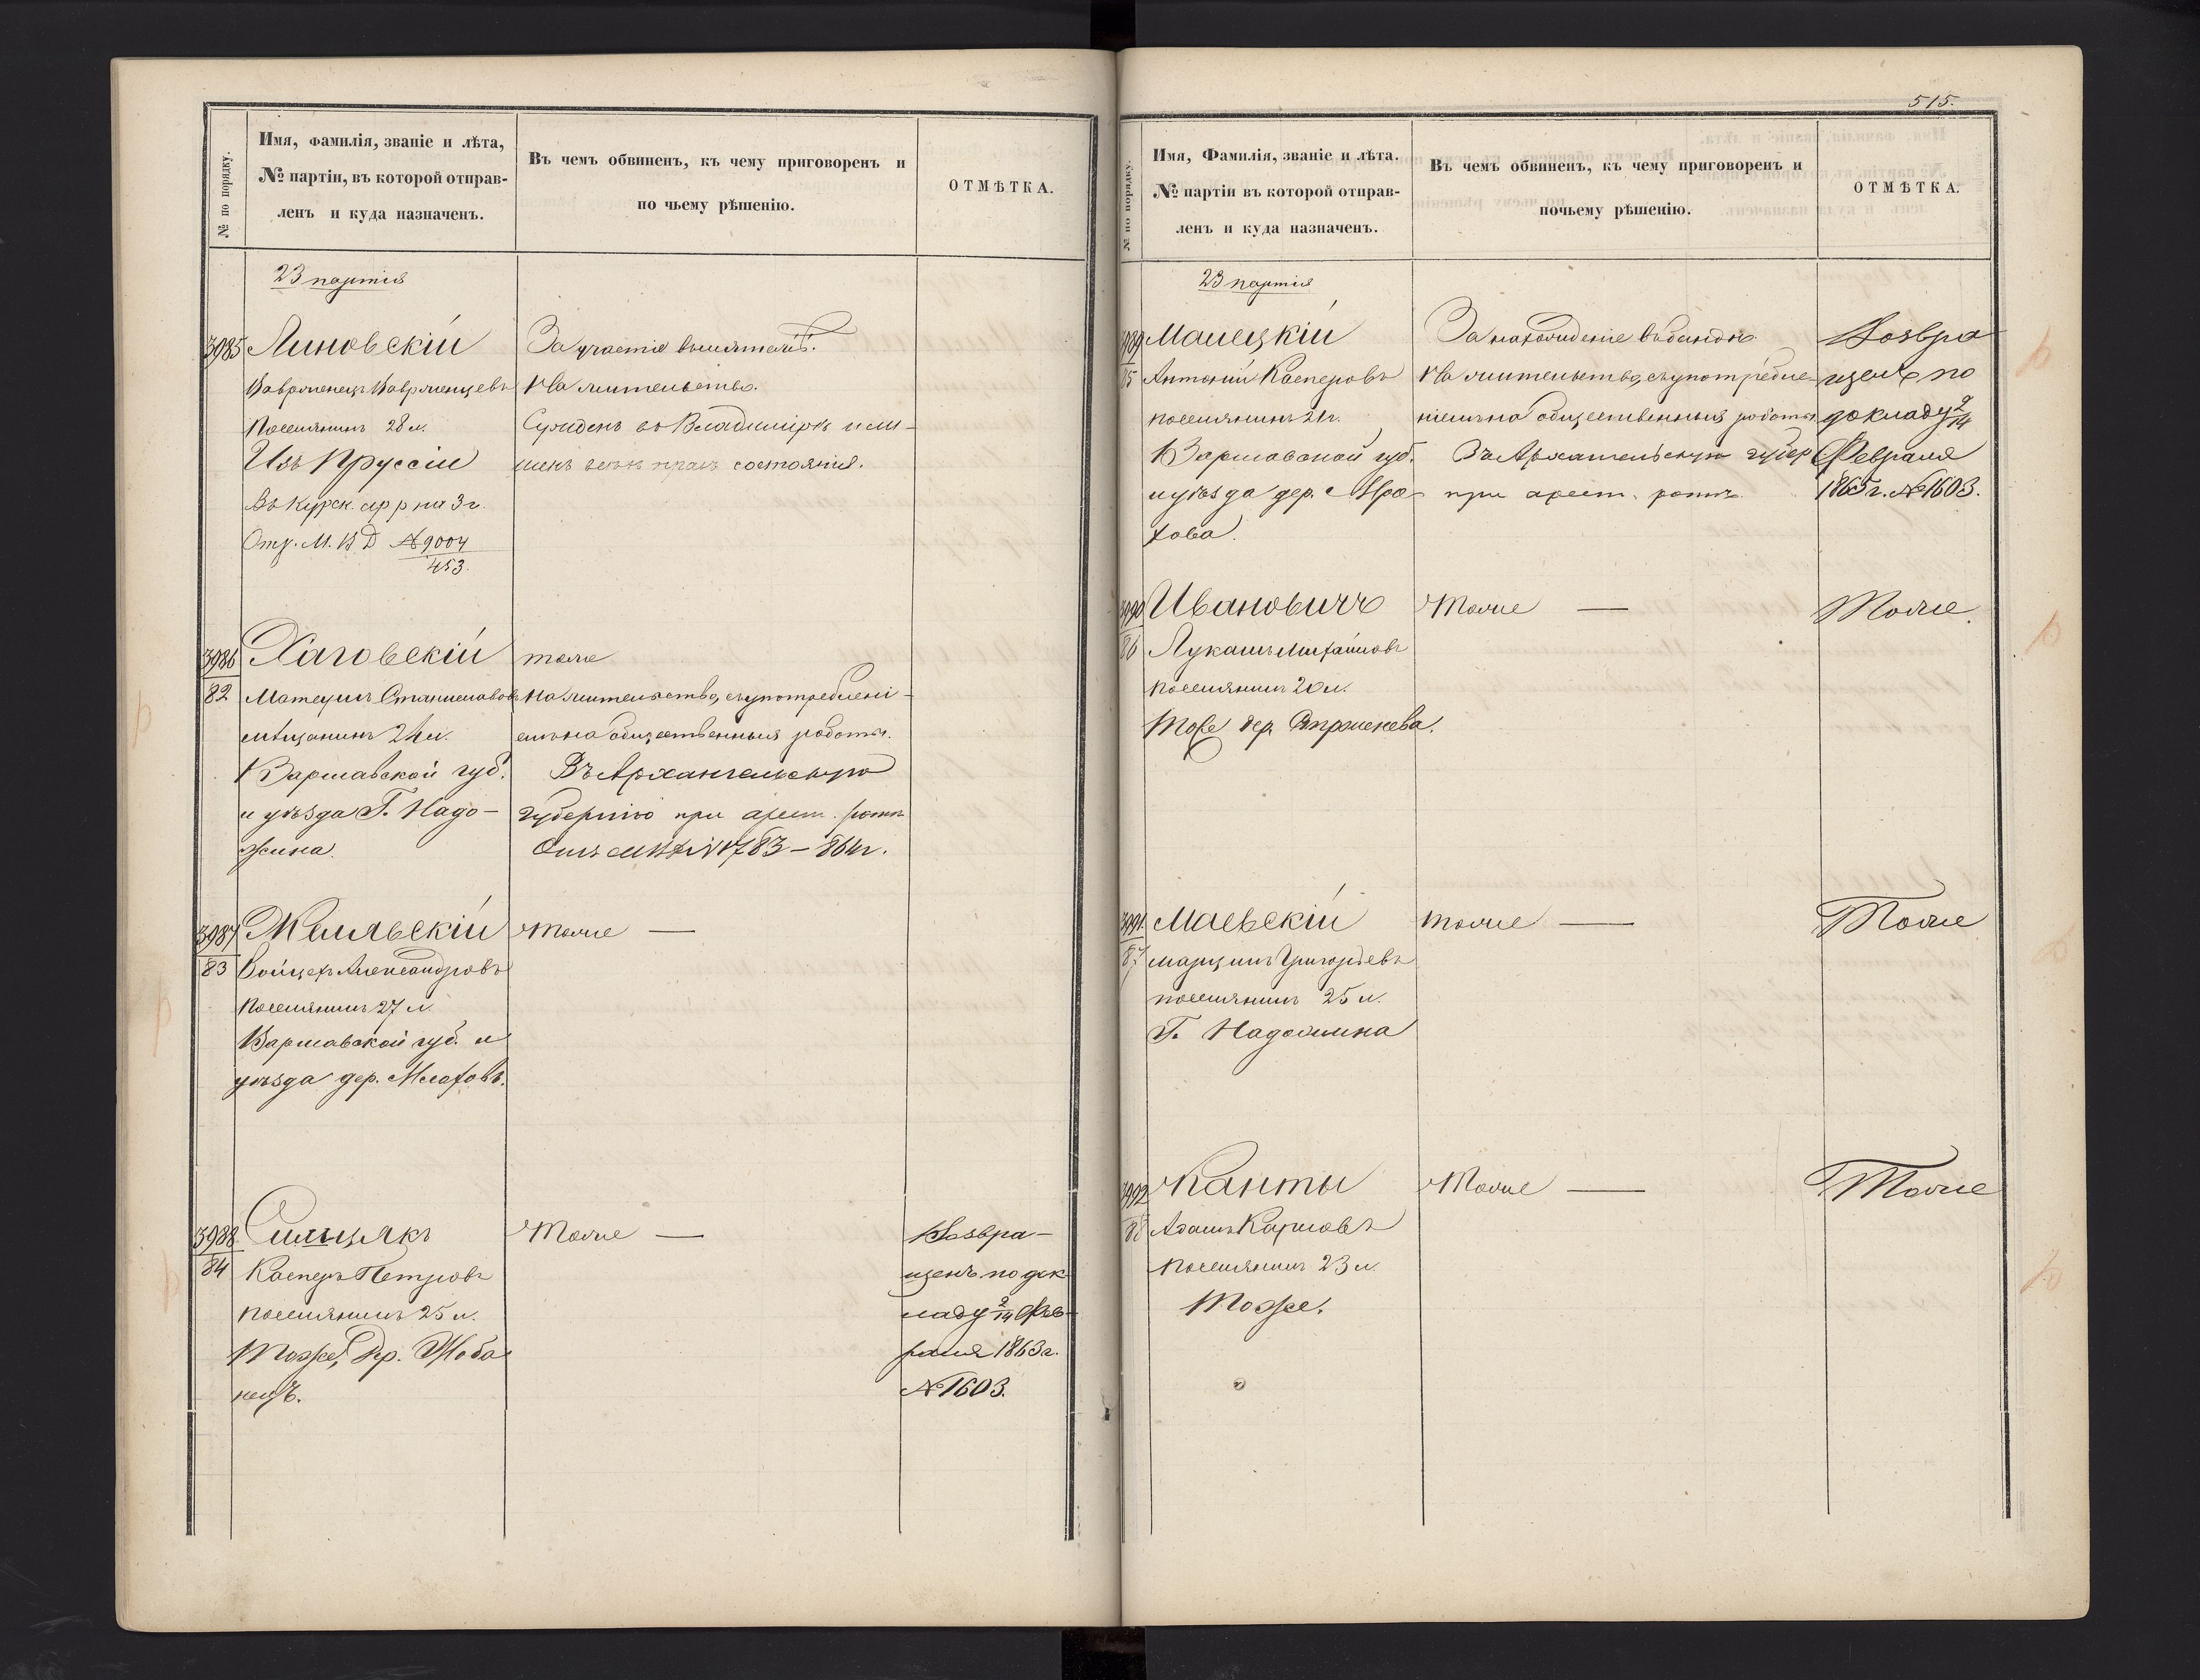 № по порядку.
Имя, фамилія, званіе и лѣта,
№ партіи, въ которой отправ-
ленъ и куда назначенъ.
Въ чемъ обвиненъ, къ чему приговоренъ и
по чьему рѣшенію.
ОТМѢТКА.
23 партія
3985 Линовскій
Поселянинъ 28 л.
Изъ Пруссіи
Въ Курск. ар р на 3 г.
Отз. М. В Д № 9004
453.
За участіе въ мятежѣ.
На жительство.
Сужденъ во Владимірѣ и ли-
шенъ всѣхъ правъ состоянія.
3986
82
Матеушъ Станиславовъ
мѣщанинъ 24 л.
Варшавской губ.
и уѣзда Г. Надо-
жина.
тоже
На жительство, съ употребленi-
емъ на общественныя работы.
Въ Архангельскую
губернію при арест. ротѣ
3987
83
Войцехъ Александровъ
поселянинъ 27 л.
Варшавской губ. и
уѣзда дер.
тоже —
3988
84
Касперъ Петровъ
поселянинъ 25 л.
Тоже, Дер.
Тоже —
Возвра-
щенъ по док-
ладу 2/14 Фев-
раля 1865 г.
№ 1603.
515.
№ по порядку.
Имя, Фамилія, званіе и лѣта.
№ партіи въ которой отправ-
ленъ и куда назначенъ.
Въ чемъ обвиненъ, къ чему приговоренъ и
почьему рѣшенію.
ОТМѢТКА.
23 партія
3989 Малецкій
85 Антоній Касперовъ
поселянинъ 21 г.
Варшавской губ.
и уѣзда дер. Мро-
хова.
За нахожденіе въ бандѣ.
На жительство, съ употребле-
ніемъ на общественныя работы.
Въ Архангельскую губер
при арест. ротѣ
Возвра
щенъ по
докладу 2/14
Февраля
1865 г. № 1603.
3990 Ивановичъ
86 Лукашъ Михайловъ
поселянинъ 20 л.
Тоже дер.
Тоже —
Тоже.
3991 Маевскій
87 Марцинъ Григорьевъ
поселянинъ 25 л.
Г. Надожина
тоже —
Тоже
3992 Канты
88 Адамъ Карловъ
поселянинъ 23 л.
Тоже.
Тоже —
Тоже